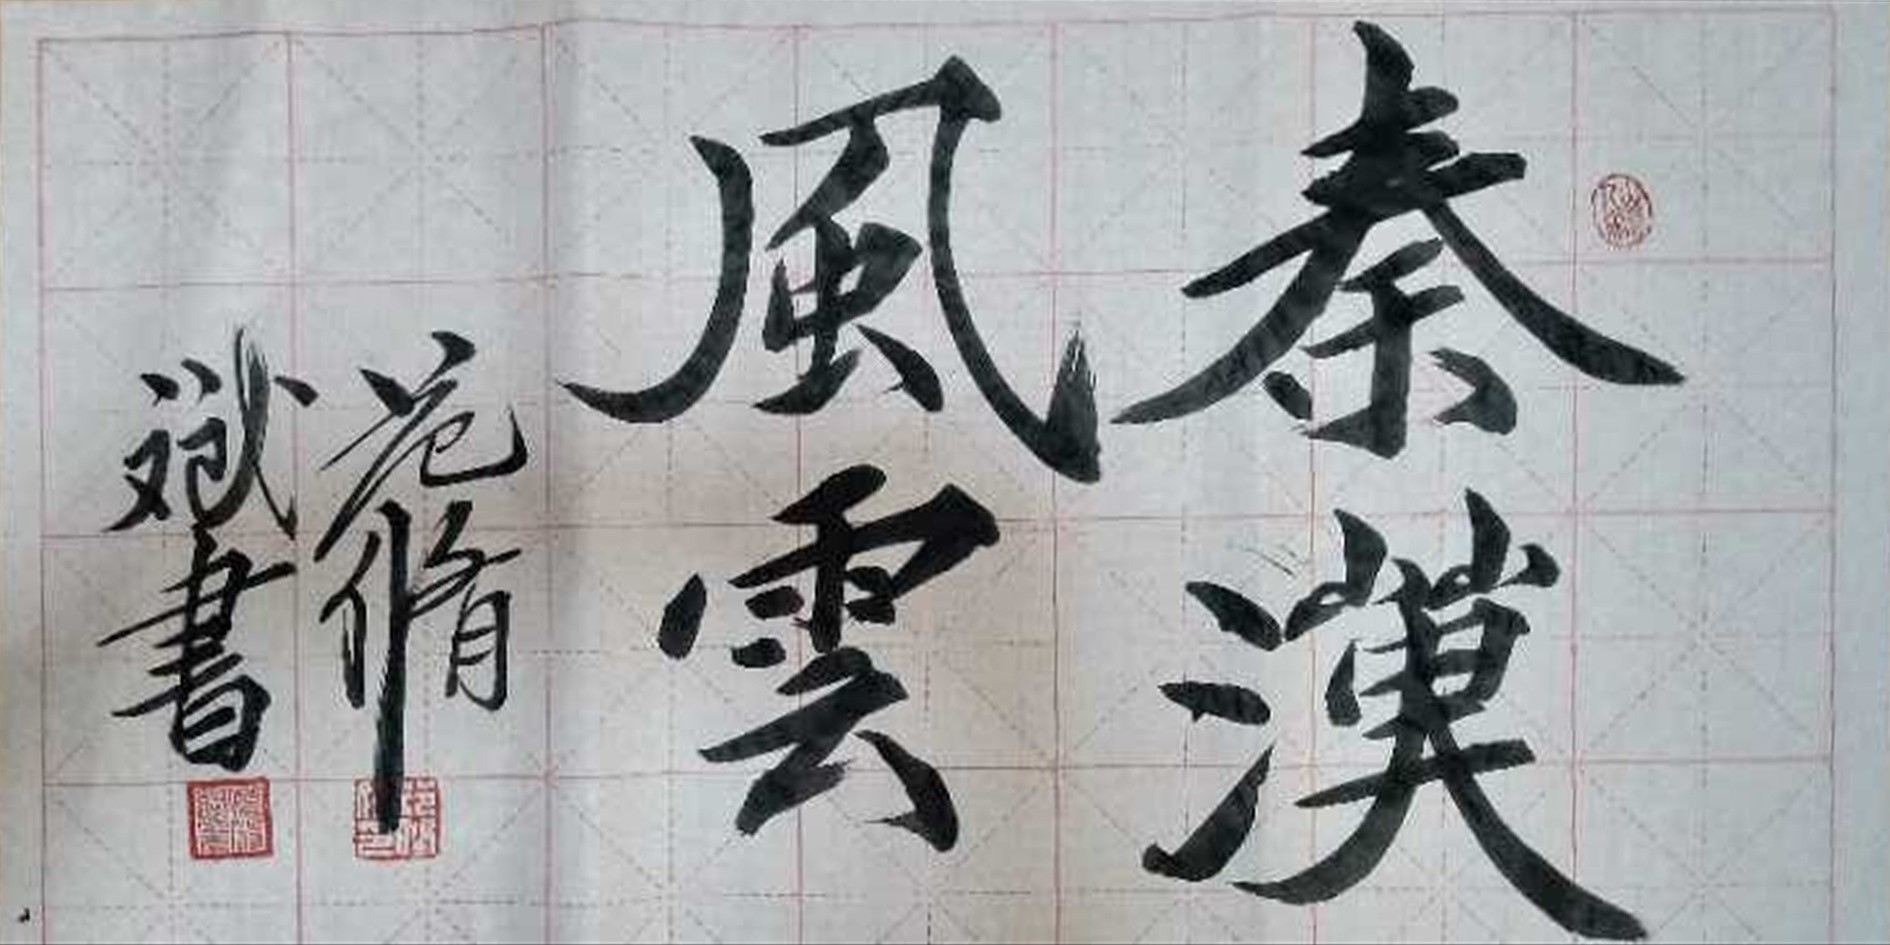 秦漢
風雲
范脩
斌書